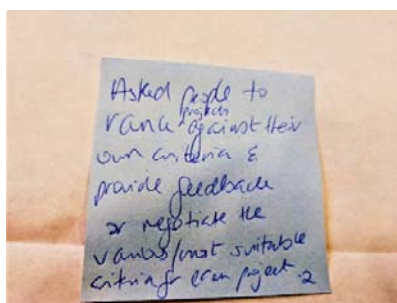 Asked people to
rank projects against their
own criteria &
provide feedback
or negotiate the
various/most suitable
criteria for each project.